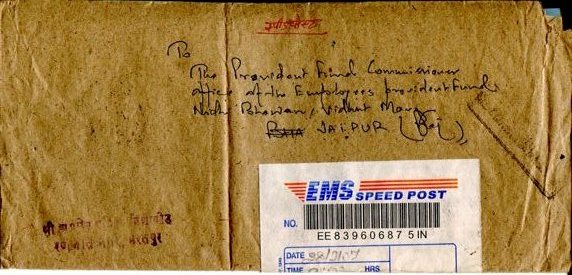 स्पीडपोस्ट
To
The Provident Fund Commissioner
office of the Employees provident Fund
Nidhi Bhawan, Vidhut Marg
JAIPUR (Raj)
EMS SPEED POST
NO.
EE83960687 5IN
DATE
TIME HRS
श्री
भरतपुर